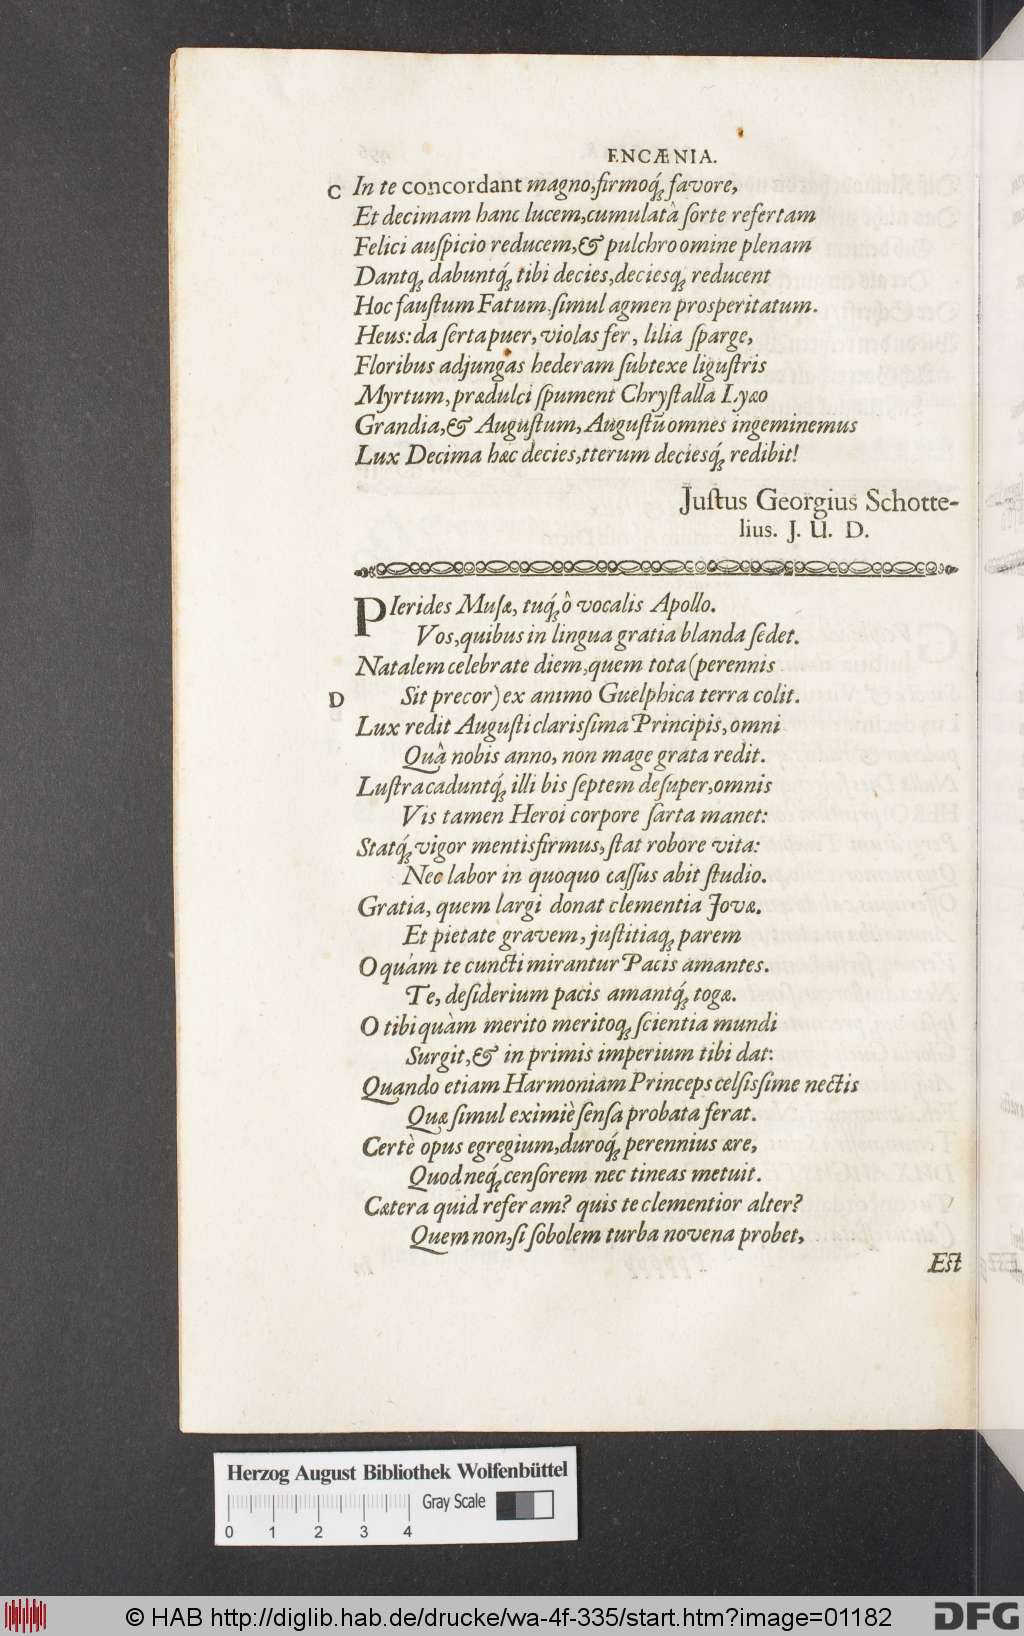 ENCÆNIA.
C In te concordant magno,firmoq́; favore,
Et decimam hanc lucem,cumulatâ ſorte refertam
Felici auſpicio reducem,& pulchro omine plenam
Dantq; dabuntq́; tibi decies,deciesq; reducent
Hoc fauſtum Fatum,ſimul agmen prosperitatum.
Heus: da ſerta puer, violas fer, lilia ſparge,
Floribus adjungas hederam ſubtexe liguſtris
Myrtum, prædulci ſpument Chryſtalla Lyæo
Grandia,& Auguſtum, Auguſtū omnes ingeminemus
Lux Decima hæc decies,tterum deciesq́; redibit!
Juſtus Georgius Schotte-
lius. J. U. D.
PIerides Muſæ, tuq́; ô vocalis Apollo.
Vos,quibus in lingua gratia blanda ſedet.
Natalem celebrate diem,quem tota (perennis
D Sit precor) ex animo Guelphica terra colit.
Lux redit Auguſti clariſſima Principis,omni
Quâ nobis anno, non mage grata redit.
Luſtra caduntq́; illi bis ſeptem deſuper,omnis
Vis tamen Heroi corpore ſarta manet:
Statq́; vigor mentis firmus, ſtat robore vita:
Nec labor in quoquo caſſus abit ſtudio.
Gratia, quem largi donat clementia Jovæ.
Et pietate gravem, juſtitiaq; parem
O quàm te cuncti mirantur Pacis amantes.
Te, deſiderium pacis amantq́; togæ.
O tibi quàm merito meritoq; ſcientia mundi
Surgit,& in primis imperium tibi dat:
Quando etiam Harmoniam Princeps celſiſſime nectis
Quæ ſimul eximiè ſenſa probata ferat.
Certè opus egregium,duroq́; perennius ære,
Quod neq́; cenſorem nec tineas metuit.
Cætera quid referam? quis te clementior alter?
Quem non,ſi ſobolem turba novena probet,
Eſt
Herzog August Bibliothek Wolfenbüttel
Gray Scale
0 1 2 3 4
© HAB http://diglib.hab.de/drucke/wa-4f-335/start.htm?image=01182
DFG